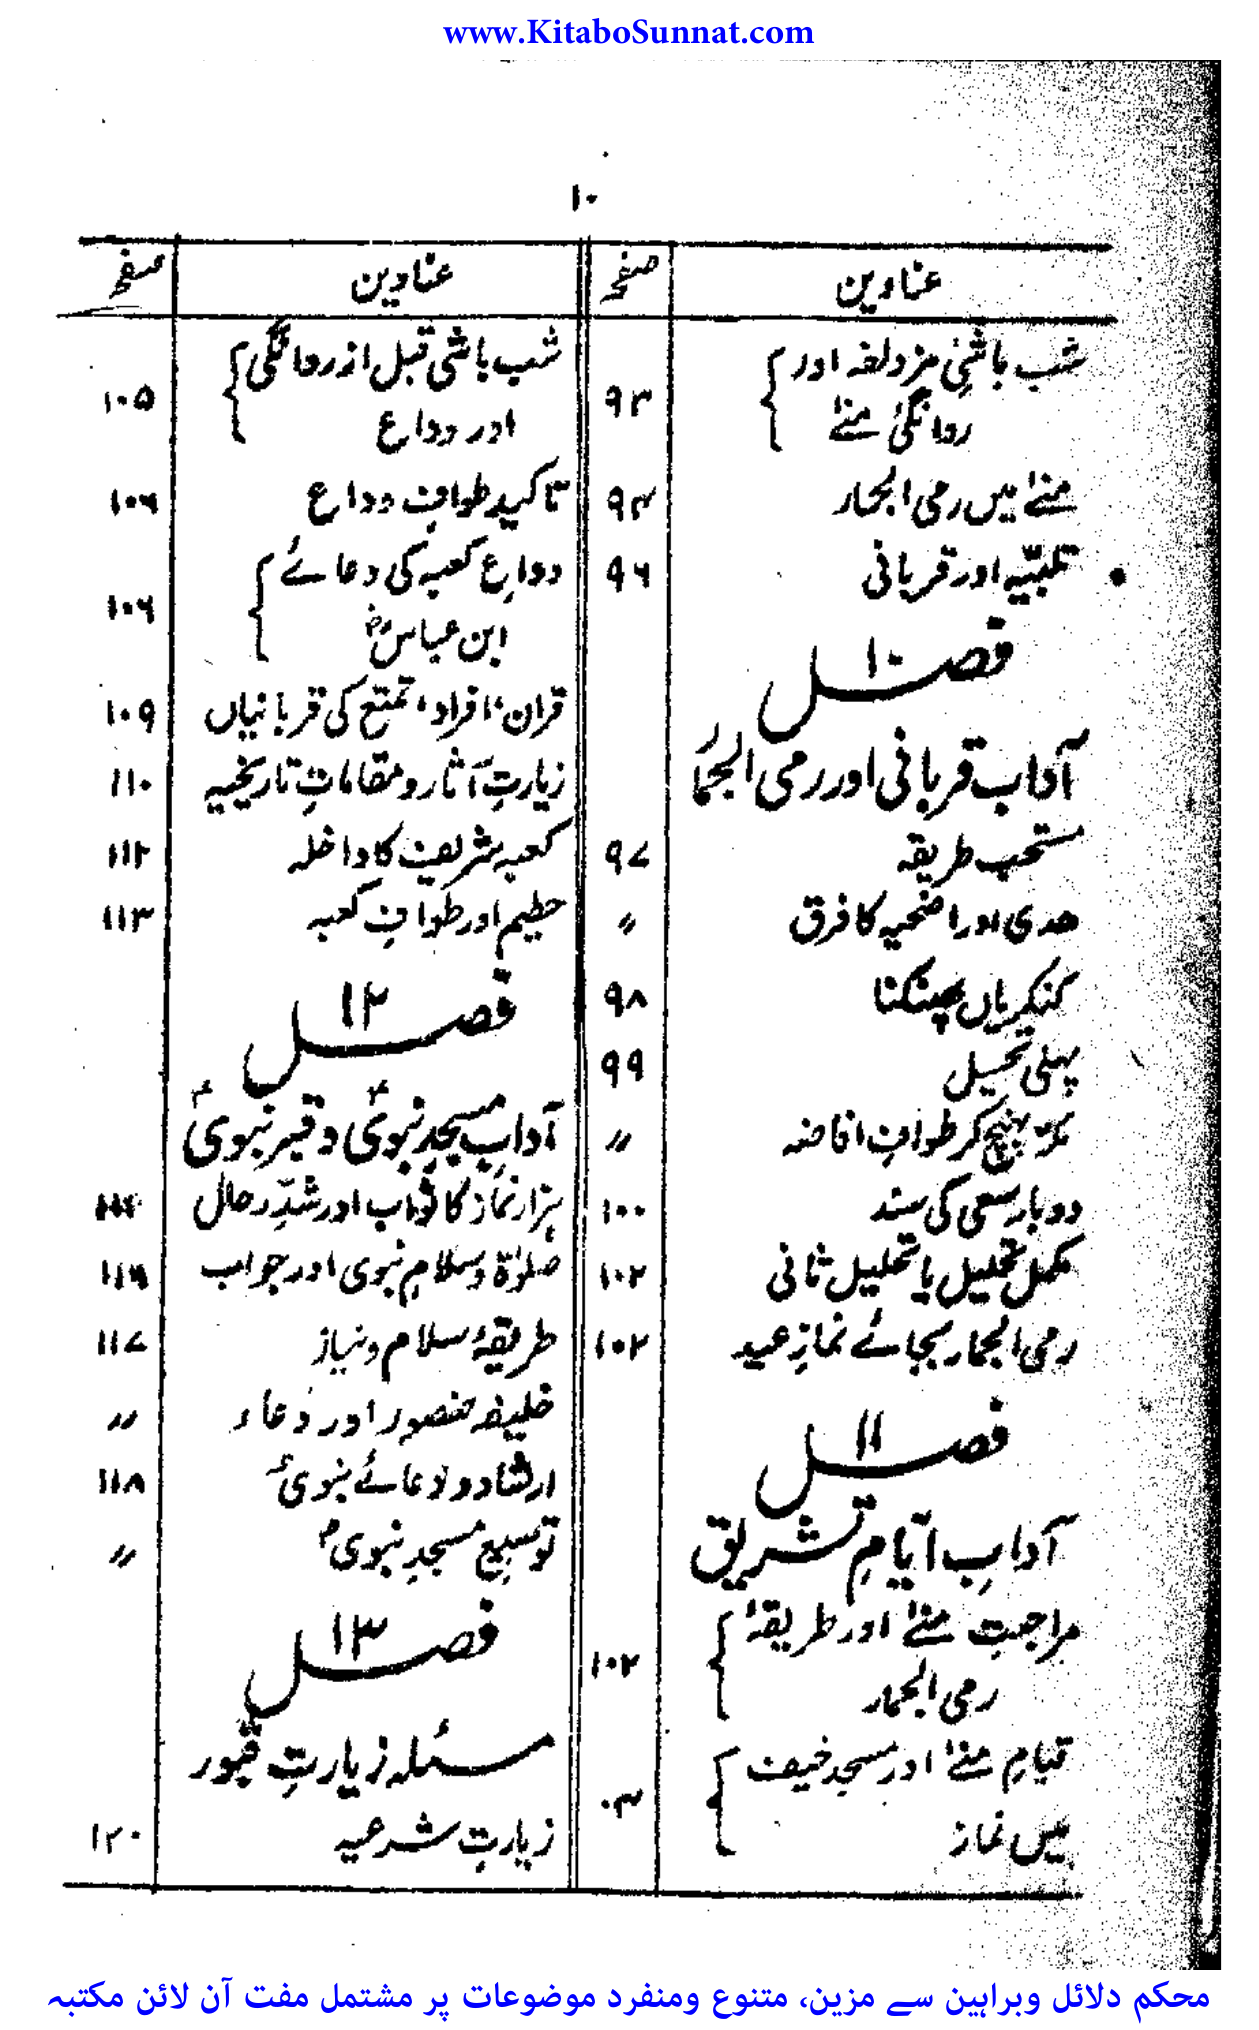 www.KitaboSunnat.com
۱۰
عناوین صفحہ
شب باشیٔ مزدلفہ اور
روانگیٔ منےٰ ۹۳
منےٰ میں رمی الجمار ۹۴
تلبیّہ اور قربانی ۹۶
فصل ۱۰
آداب قربانی اور رمی الجمار
مستحب طریقہ ۹۷
ھدی اور اضحیہ کا فرق ״
کنکریاں پھینکنا ۹۸
پہلی تحلیل ۹۹
مکّہ پہنچ کر طوافِ افاضہ ״
دوبار سعی کی سند ۱۰۰
مکمل تحلیل یا تحلیل ثانی ۱۰۲
رمی الجمار بجائے نمازِ عید ۱۰۲
فصل ۱۱
آدابِ ایّامِ تشریق
مراجعتِ منےٰ اور طریقۂ
رمی الجمار ۱۰۲
قیامِ منےٰ اور مسجد خیف
میں نماز ۰۳
عناوین صفحہ
شب باشی قبل از روانگی
اور وداع ۱۰۵
تاکیدِ طوافِ وداع ۱۰۶
وداعِ کعبہ کی دعائے
ابن عباسؓ ۱۰۶
قران، افراد، تمتع کی قربانیاں ۱۰۹
زیارتِ آثار و مقاماتِ تاریخیہ ۱۱۰
کعبہ شریف کا داخلہ ۱۱۲
حطیم اور طوافِ کعبہ ۱۱۳
فصل ۱۲
آدابِ مسجدِ نبویؐ و قبرِ نبویؐ
ہزار نماز کا ثواب اور شدِّ رحال
صلوٰۃ و سلامِ نبوی اور جواب ۱۱۶
طریقۂ سلام و نیاز ۱۱۷
خلیفہ منصور اور دعاء ״
ارشاد و دعائے نبویؐ ۱۱۸
توسیع مسجدِ نبویؐ ״
فصل ۱۳
مسئلہ زیارتِ قبور
زیارتِ شرعیہ ۱۲۰
محکم دلائل وبراہین سے مزین، متنوع ومنفرد موضوعات پر مشتمل مفت آن لائن مکتبہ